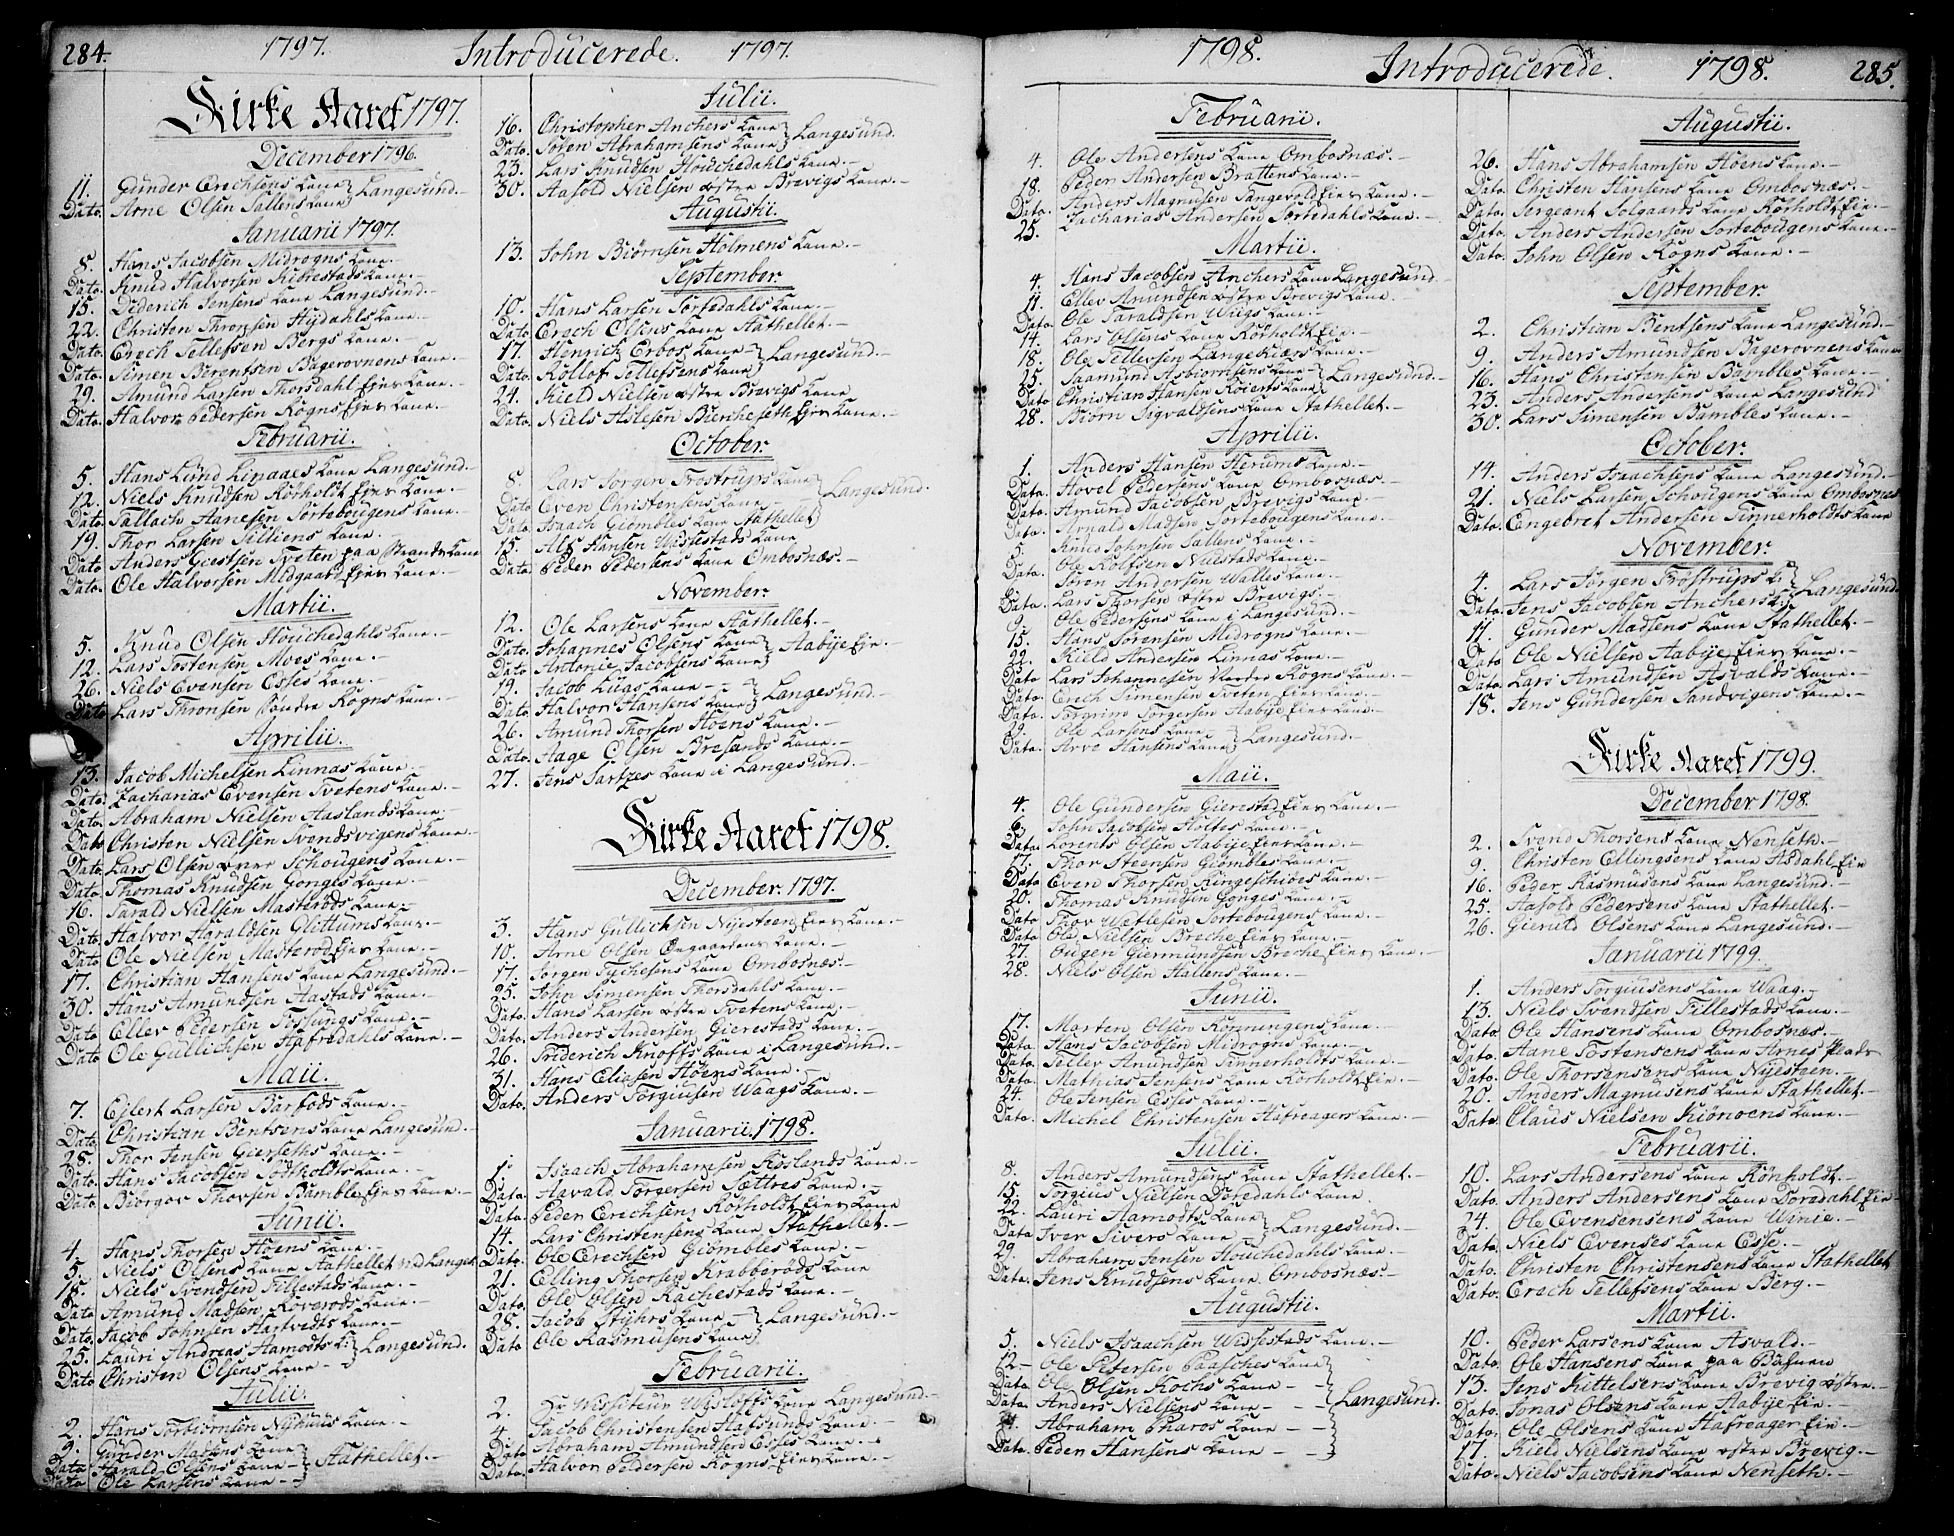 284. 1797. Introducerede. 1797.
Kirke Aaret 1797.
December 1796.
11. Gunder Erichsens Kone } Langesund.-
Dato. Arne Olsen Sallens Kone
Januarii 1797.
8. Hans Jacobsen Midrogns Kone.-
Dato. Knud Halvorsen Kierrestads Kone.-
15. Diderich Jensens Kone Langesund.-
22. Christen Thronsen Hydahls Kone.-
Dato. Erech Tellefsen Bergs Kone.-
Dato. Simen Berentsen Bagerovnens Kone.-
29. Amund Larsen Thorsdahl Eier Kone.-
Dato. Halvor Pedersen Rogns Eier Kone.-
Februarii.
5. Hans Lund Lipaaes Kone Langesund.-
12. Niels Knudsen Rörholdt Eier Kone.-
Dato. Tallach Aanesen Sortebougens Kone.-
19. Thor Larsen Tilliens Kone.
Dato Anders Giestsen Tveten paa Strands Kone
Dato. Ole Halvorsen Midgaard Eier Kone.-
Martii.
5. Knud Olsen Houchedahls Kone.-
12. Lars Tostensen Moes Kone.-
26. Niels Evensen Esses Kone.-
Dato Lars Thronsen Søndre Rogns Kone.-
Aprilii.
13. Jacob Michelsen Linnas Kone.-
Dato. Zacharias Evensen Tvetens Kone.-
Dato. Abraham Nielsen Aaslands Kone.-
Dato Christen Nielsen Svendsvigens Kone.-
Dato. Lars Olsen øvre Schougens Kone.-
Dato. Thomas Knudsen Gonges Kone.-
16. Tarald Nielsen Masterøds Kone.-
Dato. Halvor Haraldsen Glittums Kone.-
Dato Ole Nielsen Masterød Eier Kone.-
17. Christian Hansens Kone Langesund.-
30. Hans Amundsen Aastads Kone.-
Dato Eller Pedersen Fossungs Kone.-
Dato Ole Gullichsen Hafredahls Kone.-
Maii.
7. Ejlert Larsen Barfods Kone.-
Dato. Christian Bentsens Kone Langesund.-
28. Thor Jensen Gierseths Kone.-
Dato. Hans Jacobsen Tødtholdts Kone.-
Dato. Biørgor Thorsen Bamble Eier Kone.-
Junii.
4. Hans Thorsen Hoens Kone.-
5. Niels Olsens Kone Stathellet ved Langes.
18. Niels Svendsen Tillestads Kone.-
Dato Amund Madsen Roverøds Kone.-
Dato. Jacob Johnsen Hartvedts Kone.-
25. Lauri Andreas Aamodts K: } Langesund.
Dato Christen Olsens Kone -
Julii.
2. Hans Torbiørnsen Nyhuus Kone.-
9. Gunder Matsens Kone
Dato Harald Olsens Kone - } Stathellet.-
Dato Ole Larsens Kone -
Julii.
16. Christopher Anchers Kone } Langesund.
Dato. Søren Abrahamsens Kone
23. Lars Knudsen Houchedahls Kone.-
30. Aasold Nielsen østre Brevigs Kone.-
Augustii.
13. John Biørnsen Holmens Kone.-
September.
10. Hans Larsen Tortedahls Kone.-
Dato Erech Olsens Kone Stathellet.-
17. Henrich Erbos Kone - } Langesund.-
Dato. Rollof Tellefsens Kone
24. Kield Nielsen østre Brevigs Kone
Dato. Niels Hølesen Biercheseth Eier Kone.-
October.
8. Lars Jørgen Trostrups Kone } Langesund.
Dato Even Christensens Kone
Dato. Isaach Giømbles Kone Stathellet
15. Alf Hansen Widsestads Kone
Dato. Peder Pedersens Kone Ombosnæs.-
November.
12. Ole Larsens Kone Stathellet.-
Dato. Johannes Olsens Kone } Aabye Eie.-
Dato Antonie Jacobsens Kone
19. Jacob Luas Kone - - } Langesund.-
Dato. Halvor Hansens Kone
26. Amund Thorsen Hoens Kone.-
Dato. Aage Olsen Bresands Kone.-
27. Jens Sartzes Kone i Langesund.-
Kirke Aaret 1798.
December. 1797.
3. Hans Gullichsen Nyesteen Eier Kone.-
10. Arne Olsen Ougaardens Kone.-
17. Jørgen Tychesens Kone Ombosnæs.-
25. John Simensen Thorsdahls Kone.-
Dato. Hans Larsen østre Tvetens Kone.-
Dato. Anders Andersen Gierestads Kone.-
26. Friderich Knoffs Kone i Langesund.-
31. Hans Eliasen Hoens Kone.-
Dato. Anders Torgiusen Waags Kone.-
Januarii. 1798.
1. Isaach Abrahamsen Røslands Kone.-
Dato. Asvald Torgersen Sættres Kone.-
Dato. Peder Erechsens Rørholdt Eier Kone
14. Lars Christensens Kone Stathellet.-
Dato. Ole Erechsen Giømbles Kone.-
21. Elling Thorsen Krabberøds Kone
Dato. Ole Olsen Rachestads Kone.-
28. Jacob Styhrs Kone } Langesund.-
Dato Ole Rasmusens Kone
Februarii.
2. Hr Visiteur Wisløffs Kone Langesund.-
4. Jacob Christensen Hafsunds Kone.-
Dato Abraham Amundsen Esses Kone.-
Dato. Halvor Pedersen Rogns Eier Kone.-
1798. Introducerede. 1798. 285.
Februarii.
4. Ole Andersens Kone Ombosnæs.-
18. Peder Andersen Brattens Kone.-
Dato. Anders Magnusen Tangevold Eier Kone.-
25. Zacharias Andersen Tortedahls Kone.-
Martii.
4. Hans Jacobsen Anchers Kone Langesund
11. Ellev Amundsen østre Brevigs Kone.-
Dato. Ole Taraldsen Wiigs Kone.-
14. Lars Olsens Kone Rörholdt Eie.-
18. Ole Tellevsen Langekiærs Kone.-
25. Saamund Asbiørnsens Kone - } Langesund.-
Dato Christian Hansen Roierts Kone
28. Biørn Sigvaldsens Kone Stathellet.-
Aprilii.
1. Anders Hansen Herums Kone.-
Dato. Hovel Pedersens Kone Ombosnæs.-
Dato. Amund Jacobsen Brevigs Kone.-
Dato. Arnald Madsen Sortebougens Kone.-
5. Knud Johnsen Sallens Kone.-
Dato. Ole Rolfsen Nustads Kone.-
8. Søren Andersen Walles Kone.-
Dato. Lars Thorsen østre Brevigs.-
9. Ole Pedersens Kone i Langesund.-
15. Hans Sørensen Midrogns Kone.-
22. Kield Andersen Linnas Kone.-
Dato Lars Johannesen Nordre Rogns Kone.-
Dato. Erech Simensen Tveten Eier Kone.-
Dato. Torgrim Torgersen Aabye Eier Kone.-
29. Ole Larsens Kone } Langesund.-
Dato. Arve Hansens Kone
Maii.
4. Ole Gundersen Gierestad Eier Kone.-
6. John Jacobsen Holtes Kone.-
Dato. Lorents Olsen Aabye Eier Kone.-
17. Thor Steensen Giømbles Kone.-
Dato Even Thorsen Ringeschibes Kone.-
20. Thomas Knudsen Gonges Kone.-
Dato Thor Wetlesen Sortebougens Kone.-
Dato Ole Nielsen Breche Eier Kone.-
27. Ougen Giermundsen Breche Eier Kone.-
28. Niels Olsen Hallens Kone.-
Junii.
17. Morten Olsen Rønningens Kone.-
Dato. Hans Jacobsen Midrogns Kone.-
Dato. Tellev Amundsen Tinnerholdts Kone.-
Dato. Mathias Jensens Kone Rørholdt Eie.-
24. Ole Jensen Esses Kone.-
Dato. Michel Christensen Hafreagers Kone.-
Julii.
8. Anders Amundsens Kone Stathellet.-
15. Torgius Nielsen Doredahls Kone
22. Lauri Aamodts Kone } Langesund.-
Dato Iver Sivers Kone
29. Abraham Jensen Houchedahls Kone.-
Dato. Jens Knudsens Kone Ombosnæs.-
Augustii.
5. Niels Isaachsen Widsestads Kone.-
12- Ole Petersen Paasches Kone
Dato. Ole Olsen Kochs Kone -
Dato. Anders Nielsens Kone - - } Langesund.
Abraham Pharos Kone - -
Dato. Peder Hansens Kone - -
Augustii.
26. Hans Abrahamsen Hoens Kone.-
Dato. Christen Hansens Kone Ombosnæs.-
Dato. Sergeant Solgaards Kone Rørholdt Eie.-
Dato. Anders Andersen Sortebougens Kone.-
Dato. John Olsen Rogns Kone.-
September.
2. Christian Bentsens Kone Langesund.-
9. Anders Amundsen Bagerovnens Kone
16. Hans Christensen Bambles Kone.-
23. Anders Andersens Kone Langesund
30. Lars Simensen Bambles Kone.-
October.
14. Anders Isaachsens Kone Langesund.
21. Niels Larsen Schougens Kone Ombosnes
Dato. Engebret Andersen Tinnerholdts Kone
November.
4. Lars Jørgen Trøstrups K: } Langesund
Dato. Jens Jacobsen Anchers K:
11. Gunder Madsens Kone Stathellet.-
Dato Ole Nielsen Aabye Eier Kone.-
Dato. Lars Amundsen Asvalds Kone.-
18. Jens Gundersen Sandvigens Kone.-
Kirke Aaret 1799.
December 1798.
2. Svend Thorsens Kone Nenseth.-
9. Christen Ellingsens Kone Asdahl Eie
16. Peder Rasmusens Kone Langesund.-
25. Aasold Pedersens Kone Stathellet.-
26. Gieruld Olsens Kone Langesund.-
Januarii 1799.
1. Anders Torgiusens Kone Waag.-
13. Niels Svandsen Tillestads Kone.-
Dato. Ole Hansens Kone Ombosnæs.-
Dato. Aane Tostensens Kone Arnes Plads
Dato. Ole Thorsensens Kone Nyesteen.-
20. Anders Magnusens Kone Stathellet.-
Dato. Claus Nielsen Kiønøens Kone.-
Februarii.
10. Lars Andersens Kone Rönholdt.-
Dato. Anders Andersens Kone Doredahl Eie-
24. Ole Evensens Kone Winie.-
Dato. Niels Evenses Kone Esse.-
Dato. Christen Christensens Kone Stathellet
Dato. Erech Tellefsens Kone Berg.-
Martii.
10. Peder Larsens Kone Asvald.-
Dato. Ole Hansens Kone paa Baanen
13. Jens Kittelsens Kone Brevig østre.-
Dato. Jonas Olsens Kone Aabye Eie.-
Dato. Ole Olsens Kone Hafreager Eie.-
17. Kield Nielsens Kone østre Brevig.-
Dato. Niels Jacobsens Kone Nenseth.-